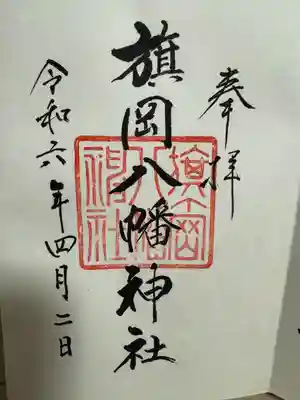 奉拝
旗岡八幡神社
令和六年四月二日
旗岡八幡神社